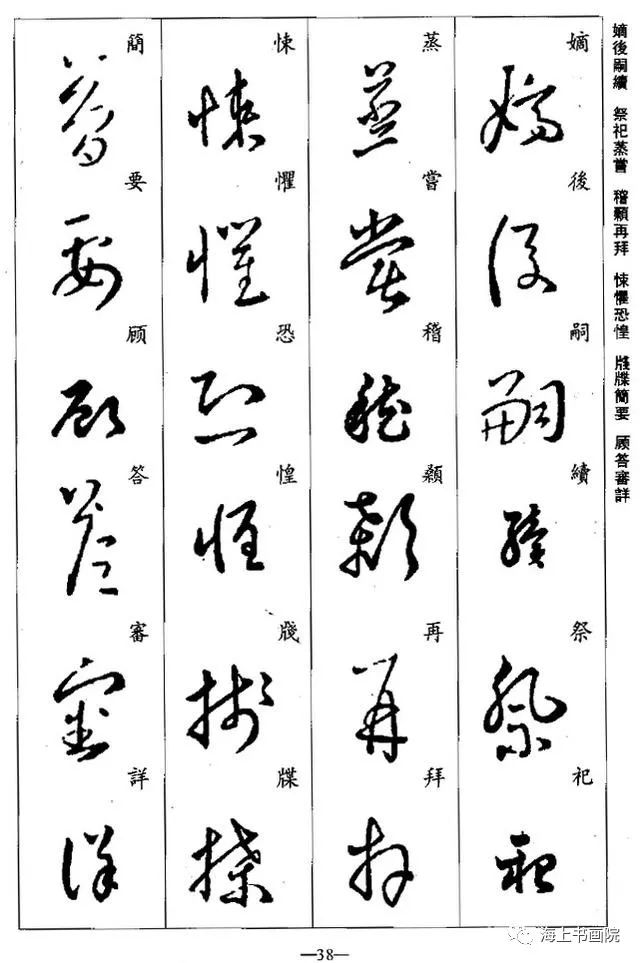 嫡後嗣續 祭祀蒸嘗 稽顙再拜 悚懼恐惶 牋牒簡要 顾答審詳
嫡後嗣續祭祀
蒸嘗稽顙再拜
悚懼恐惶牋牒
簡要顾答審詳
—38—
海上书画院